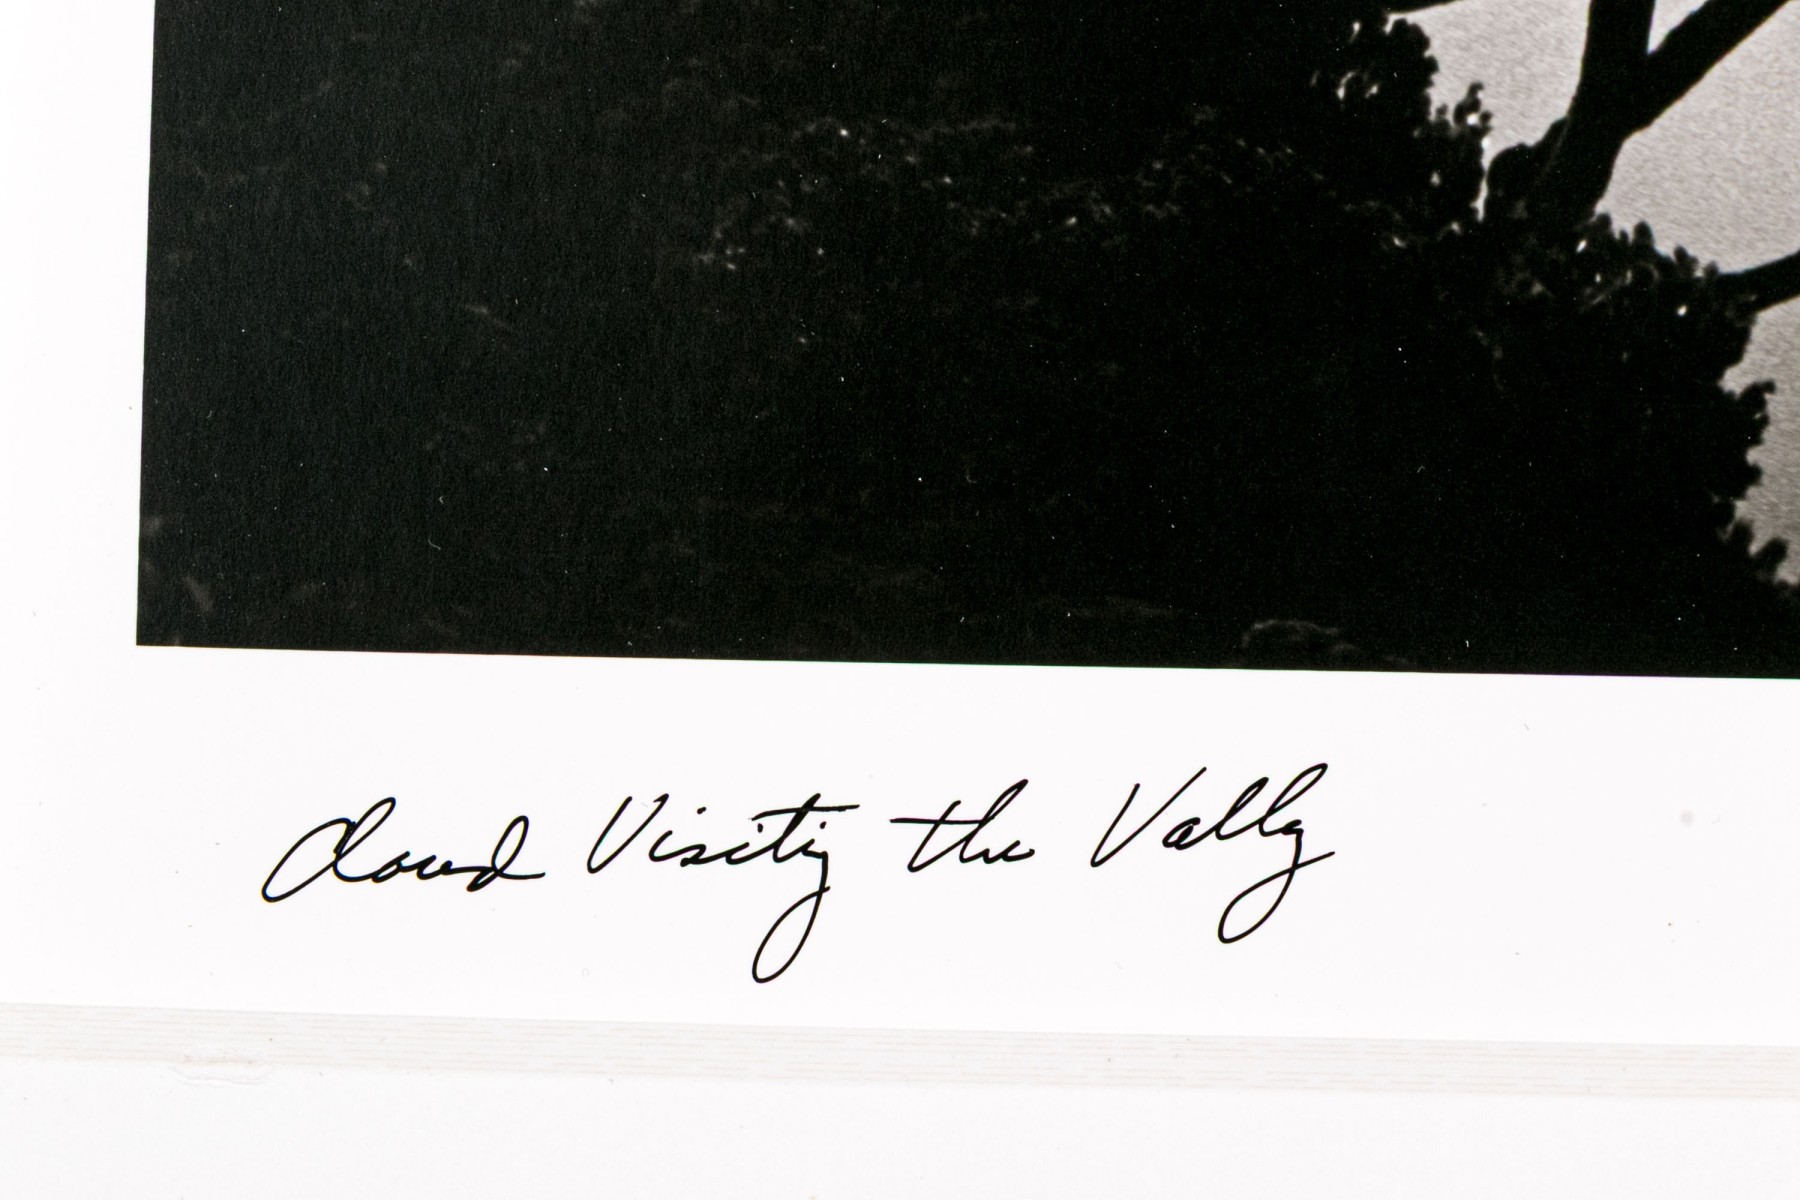 Cloud Visiting the Valley